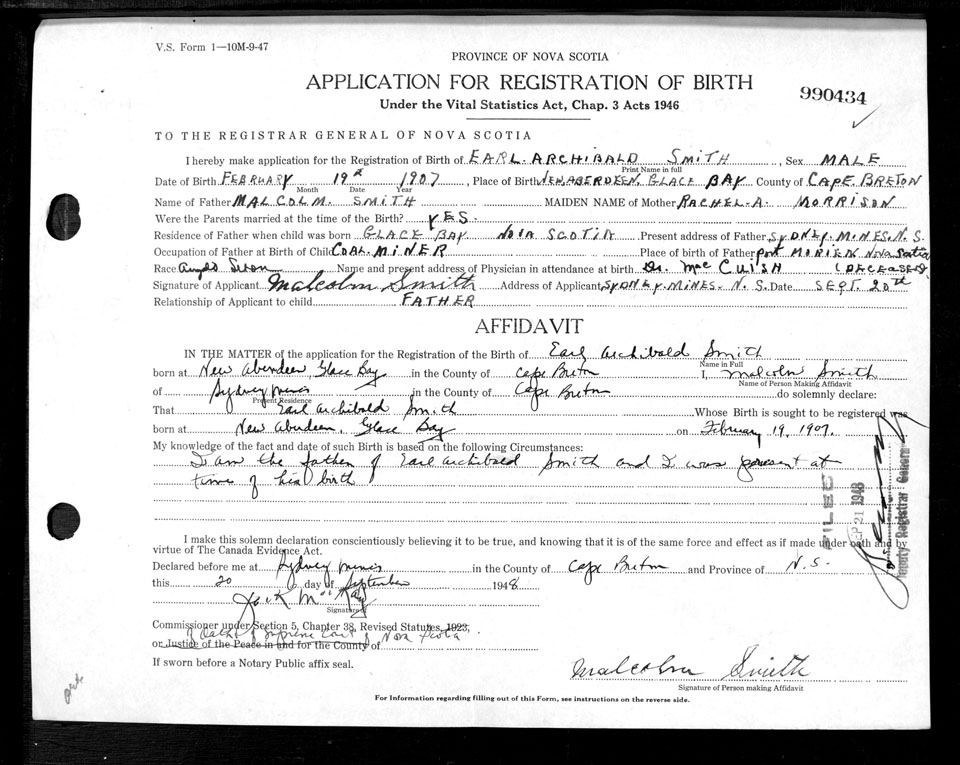 V.S. Form 1—10M-9-47
PROVINCE OF NOVA SCOTIA
APPLICATION FOR REGISTRATION OF BIRTH
990434
Under the Vital Statistics Act, Chap. 3 Acts 1946
TO THE REGISTRAR GENERAL OF NOVA SCOTIA
I hereby make application for the Registration of Birth of EARL ARCHIBALD SMITH, Sex MALE
Print Name in full
Date of Birth FEBRUARY 19th 1907, Place of Birth NEW ABERDEEN, GLACE BAY County of CAPE BRETON
Month Date Year
Name of Father MALCOLM SMITH MAIDEN NAME of Mother RACHEL A. MORRISON
Were the Parents married at the time of the Birth? YES.
Residence of Father when child was born GLACE BAY NOVA SCOTIA Present address of Father SYDNEY MINES, N.S.
Occupation of Father at Birth of Child COAL MINER Place of birth of Father port MORIEN Nova Scotia
Race Name and present address of Physician in attendance at birth Dr. Mac CUISH (DECEASED).
Signature of Applicant Malcolm Smith Address of Applicant SYDNEY MINES. N.S. Date SEPT. 20th
Relationship of Applicant to child FATHER
AFFIDAVIT
IN THE MATTER of the application for the Registration of the Birth of Earl Archibald Smith
Name in Full
born at New Aberdeen Glace Bay in the County of Cape Breton I, Malcolm Smith
Name of Person Making Affidavit
of Sydney Mines in the County of Cape Breton do solemnly declare:
Present Residence
That Earl Archibald Smith Whose Birth is sought to be registered was
born at New Aberdeen, Glace Bay on February 19, 1907.
My knowledge of the fact and date of such Birth is based on the following Circumstances:
I am the father of Earl Archibald Smith and I was present at
time of his birth
FILED
SEP 21 1948
Deputy Registrar General
I make this solemn declaration conscientiously believing it to be true, and knowing that it is of the same force and effect as if made under oath and by
virtue of The Canada Evidence Act.
Declared before me at Sydney Mines in the County of Cape Breton and Province of N.S.
this 20 day of September 1948
Jack MacKay
Signature
Commissioner under Section 5, Chapter 38, Revised Statutes, 1923,
of Supreme Court of Nova Scotia
or Justice of the Peace in and for the County of
If sworn before a Notary Public affix seal.
Malcolm Smith
Signature of Person making Affidavit
For Information regarding filling out of this Form, see instructions on the reverse side.